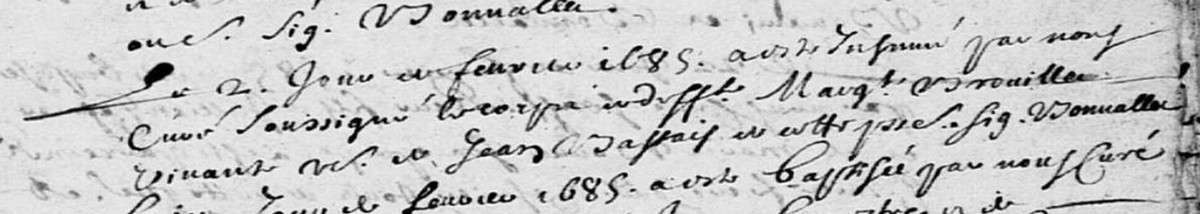 ou s. sig. Bonvallet.
Le 2. Jour de feuvrier 1685. a esté Inhumé par nous
Curé soussigné le corps de deffte. Margte. Brouillet
vivante ve. de Jean Bassais de cette psse. sig. Bonvallet
Jour de feuvrier 1685. a esté baptisée par nous Curé